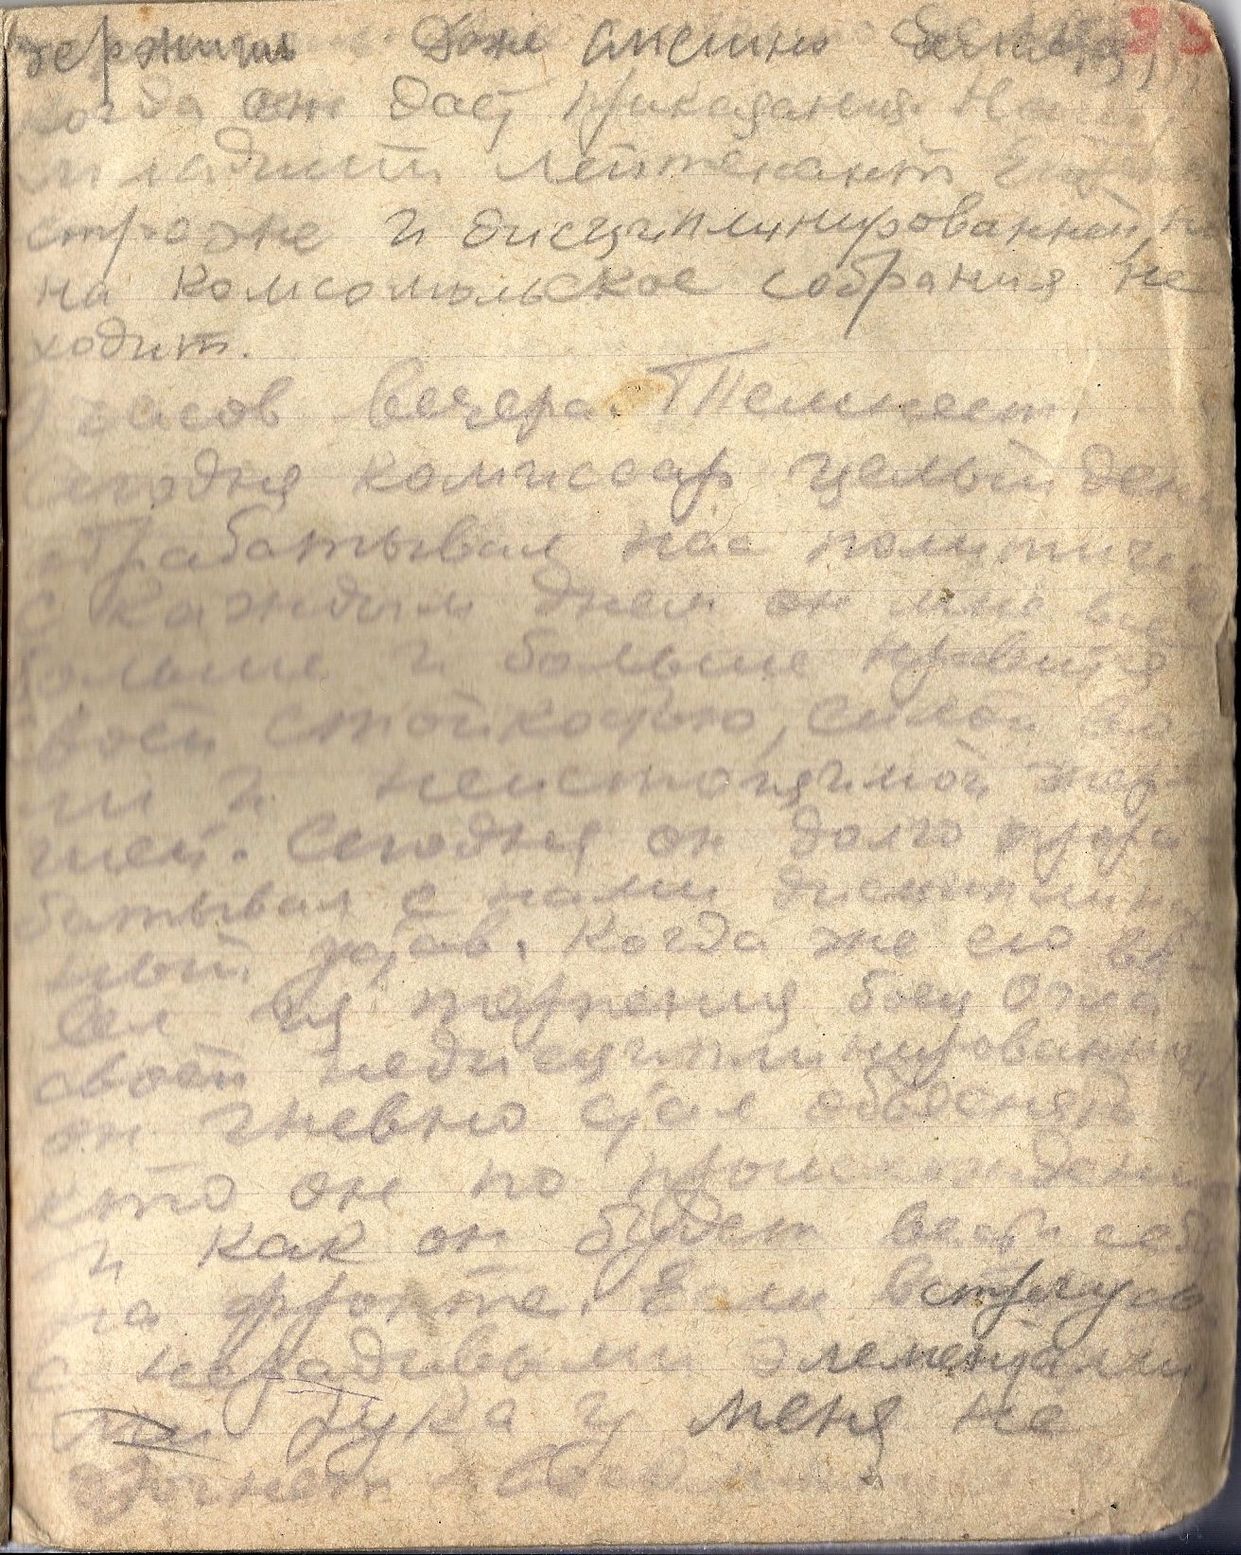 держит. Даже смешно бывает,
когда он даёт приказания. Наш
младший лейтенант
строже и дисциплинированней, но
на комсомольское собрания не
ходит.
часов вечера. Темнеет.
Сегодня комиссар целый день
обрабатывал нас политич.
С каждым днем он мне всё
больше и больше нравится
своей стойкостью, силой во
ли и неистощимой энер
гией. Сегодня он долго прора
батывал с нами дисциплинар
ный устав. Когда же его вы
вел из терпения боец
своей недисциплинированн
он гневно стал объяснять
кто он по происхождению
и как он будет вести себя
на фронте. Если встречусь
с нерадивыми элементами,
рука у меня не
дрогнет